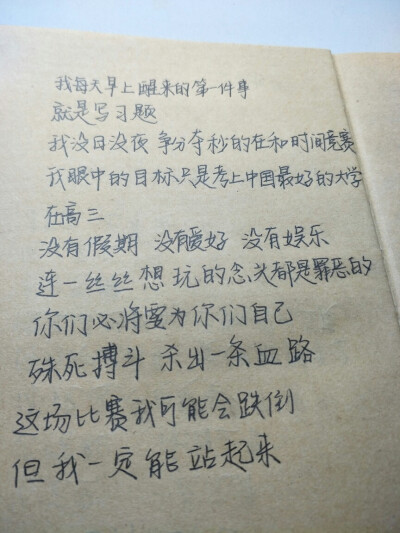 我每天早上醒来的第一件事
就是写习题
我没日没夜 争分夺秒的在和时间竞赛
我眼中的目标只是考上中国最好的大学
在高三
没有假期 没有爱好 没有娱乐
连一丝丝想玩的念头都是罪恶的
你们必将要为你们自己
殊死搏斗 杀出一条血路
这场比赛我可能会跌倒
但我一定能站起来